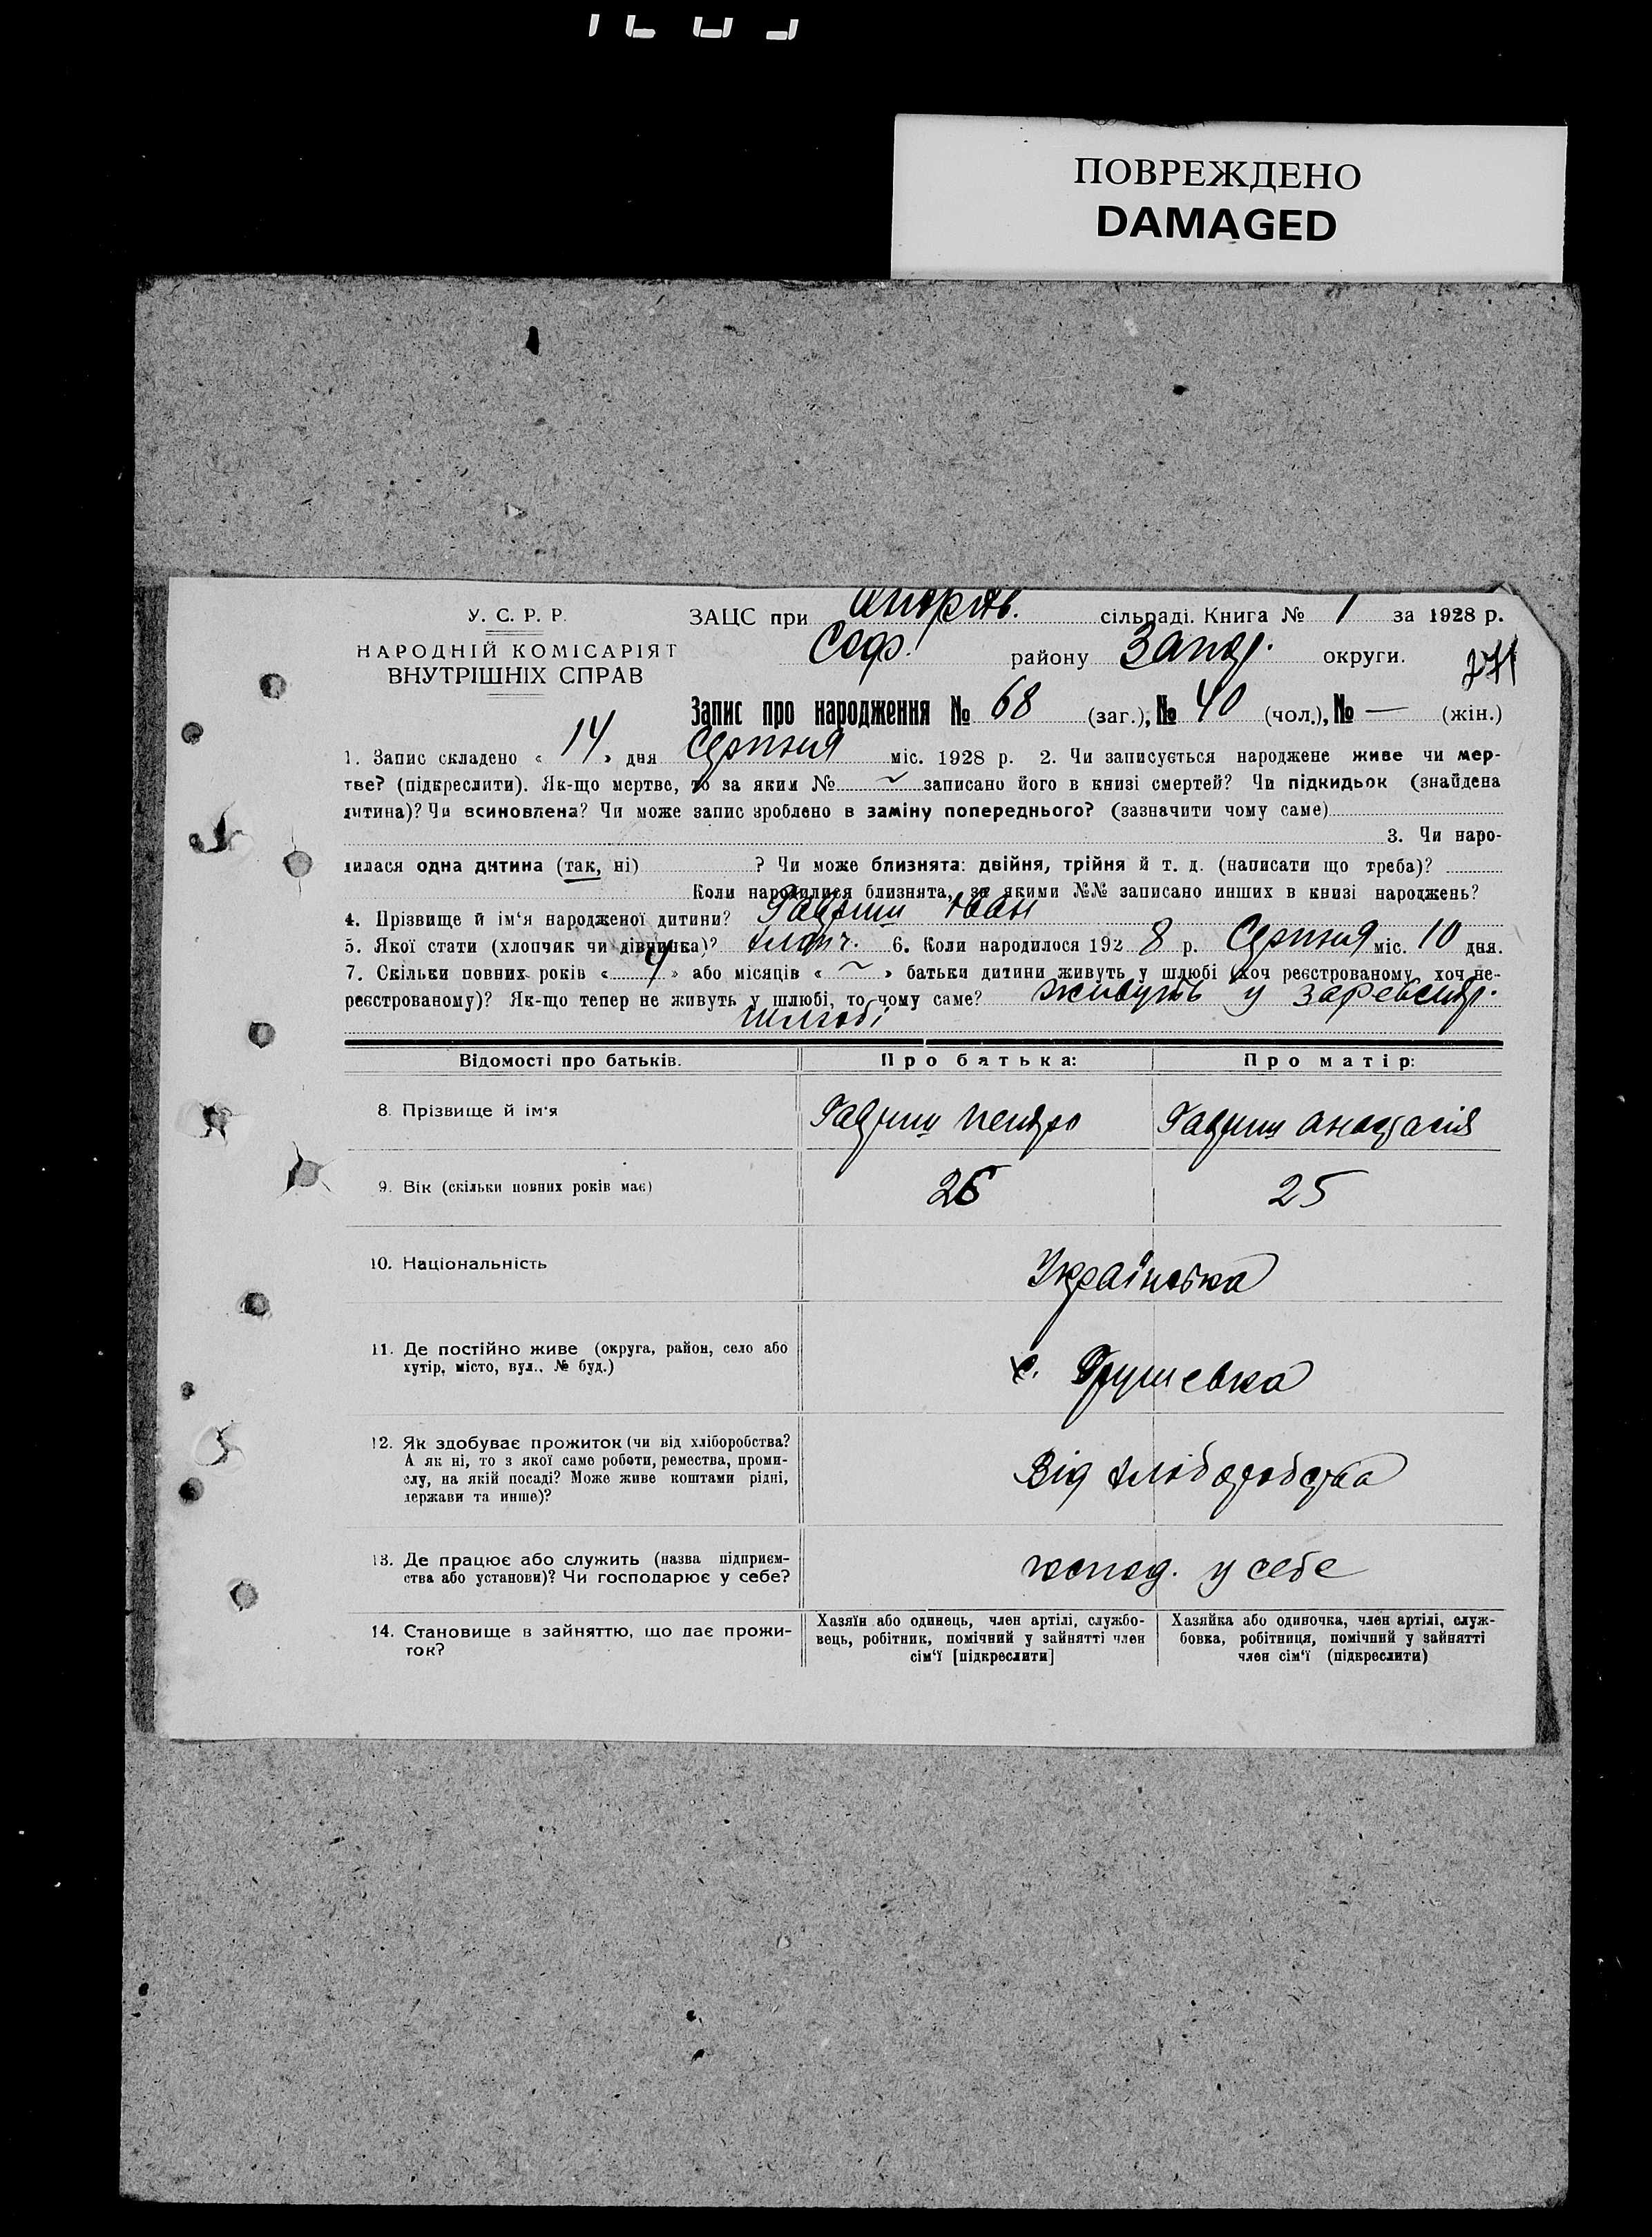 ПОВРЕЖДЕНО
DAMAGED
У. С. Р. Р.
НАРОДНІЙ КОМІСАРІЯТ
ВНУТРІШНІХ СПРАВ
ЗАЦС при Андріїв. сільраді. Книга № 1 за 1928 р.
Соф. району Запор. округи.
271
Запис про народження № 68 (заг.), № 40 (чол.), № — (жін.)
1. Запис складено « 14 » дня Серпня міс. 1928 р. 2. Чи записується народжене живе чи мер-
тве? (підкреслити). Як-що мертве, то за яким № ~ записано його в книзі смертей? Чи підкидьок (знайдена
дитина)? Чи всиновлена? Чи може запис зроблено в заміну попереднього? (зазначити чому саме)
3. Чи наро-
дилася одна дитина (так, ні) ? Чи може близнята: двійня, трійня й т. д. (написати що треба)?
Коли народилися близнята, за якими №№ записано инших в книзі народжень?
4. Прізвище й ім'я народженої дитини? Гавриш Іван
5. Якої стати (хлопчик чи дівчинка)? хлопч. 6. Коли народилося 192 8 р. Серпня міс. 10 дня.
7. Скільки повних років « 4 » або місяців « ~ » батьки дитини живуть у шлюбі (хоч реєстрованому, хоч не-
реєстрованому)? Як-що тепер не живуть у шлюбі, то чому саме? живуть у
шлюбі
Відомості про батьків. Про батька: Про матір:
8. Прізвище й ім'я Гавриш Петро Гавриш Анастасія
9. Вік (скільки повних років має) 26 25
10. Національність Українська
11. Де постійно живе (округа, район, село або
хутір, місто, вул., № буд.) с. Грушевка
12. Як здобуває прожиток (чи від хліборобства?
А як ні, то з якої саме роботи, ремества, проми-
слу, на якій посаді? Може живе коштами рідні,
держави та инше)? Від хліборобства
13. Де працює або служить (назва підприєм-
ства або установи)? Чи господарює у себе? господ. у себе
14. Становище в зайняттю, що дає прожи-
ток?
Хазяїн або одинець, член артілі, службо-
вець, робітник, помічний у зайнятті член
сім'ї [підкреслити]
Хазяйка або одиночка, член артілі, служ-
бовка, робітниця, помічний у зайнятті
член сім'ї (підкреслити)